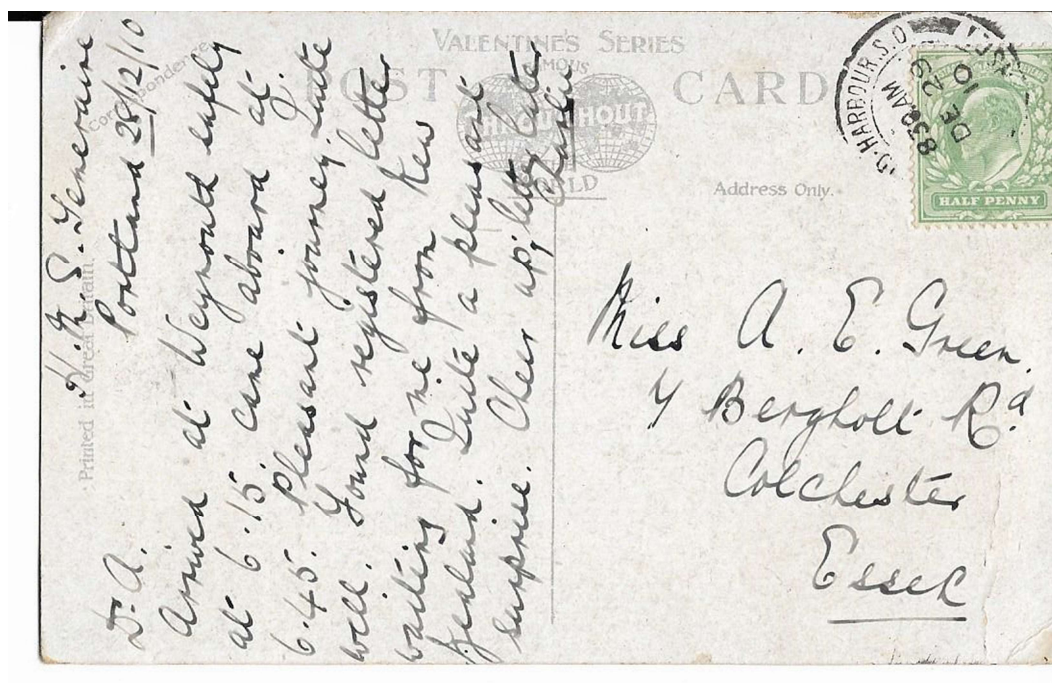 VALENTINE'S SERIES
FAMOUS
THROUGHOUT
WORLD
POST CARD
Correspondence.
Address Only.
Printed in Great Britain.
HARBOUR. S.O.
830AM
DE 29
10
HALF PENNY
H. M. S. Temeraire
Portland 28/12/10
Dr A.
Arrived at Weymouth safely
at 6.15. Came aboard at
6.45. Pleasant journey. Quite
well. Found registered letter
waiting for me from New
Zealand. Quite a pleasant
surprise. Cheer up, letter later
Miss A. E. Green.
7 Bergholt Rd
Colchester
Essex